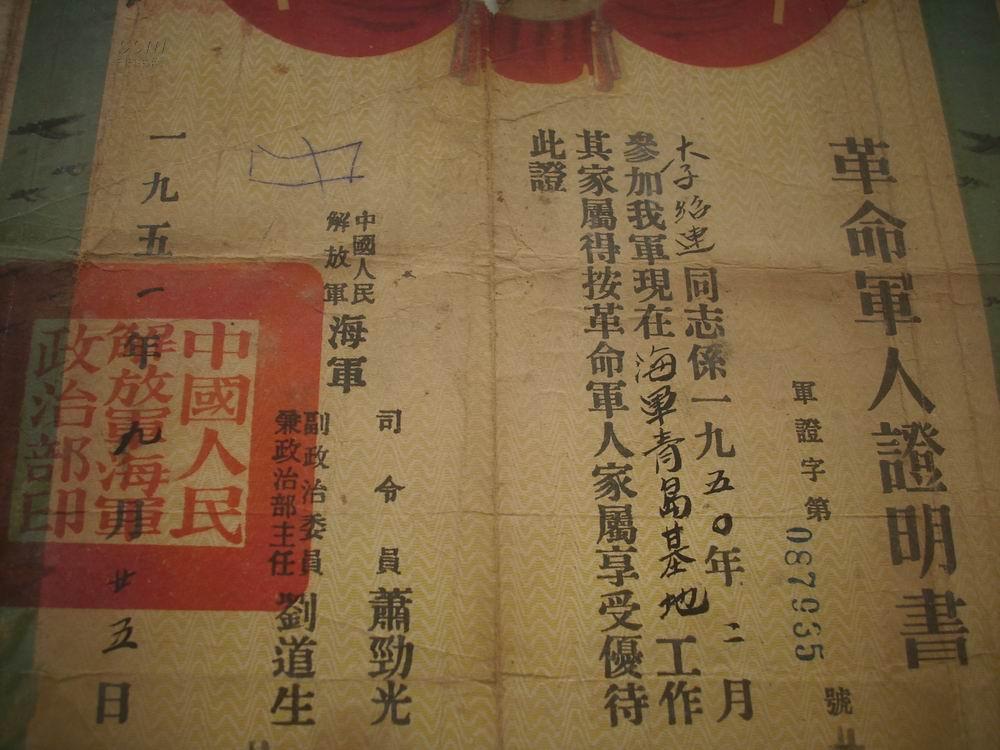 革命軍人證明書
軍證字第087955號
李紹連同志係一九五〇年二月
參加我軍現在海軍青島基地工作
其家屬得按革命軍人家屬享受優待
此證
中國人民解放軍海軍
司令員蕭勁光
副政治委員兼政治部主任劉道生
一九五一年九月廿五日
中國人民
解放軍海軍
政治部印